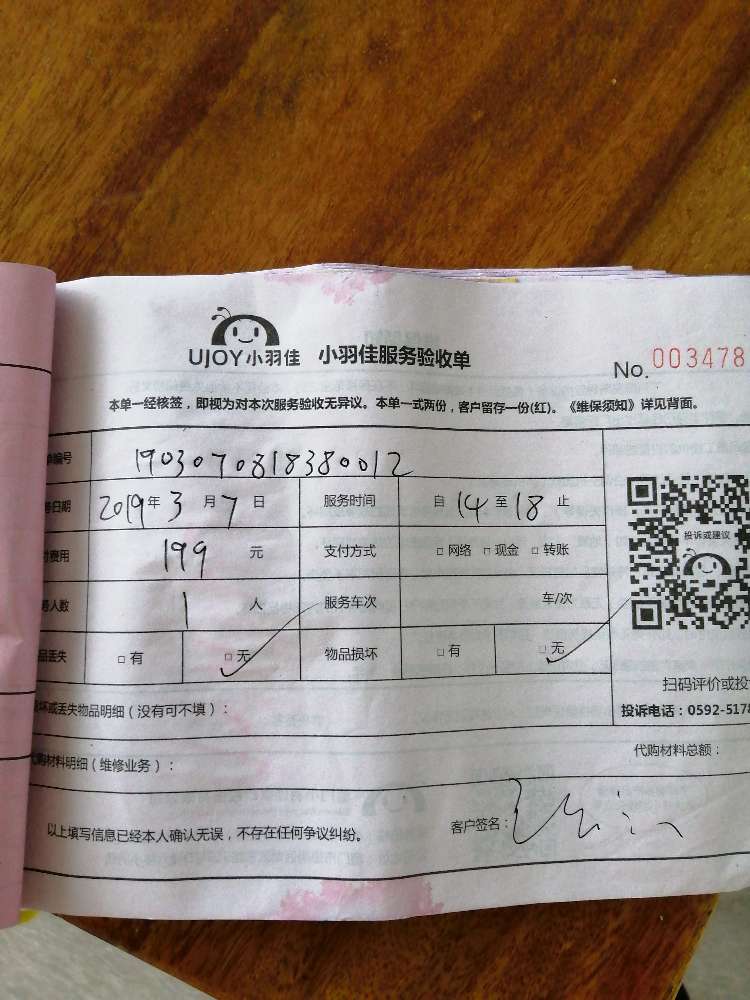 UJOY小羽佳 小羽佳服务验收单 No. 003478
本单一经核签，即视为对本次服务验收无异议。本单一式两份，客户留存一份(红)。《维保须知》详见背面。
编号 1903070818380012
日期 2019年3月7日 服务时间 自14至18止
费用 199元 支付方式 □网络 □现金 □转账
人数 1人 服务车次 车/次
投诉或建议
品丢失 □有 □无 物品损坏 □有 □无
扫码评价或投
坏或丢失物品明细（没有可不填）： 投诉电话：0592-5178
代购材料总额：
购材料明细（维修业务）：
以上填写信息已经本人确认无误，不存在任何争议纠纷。 客户签名：